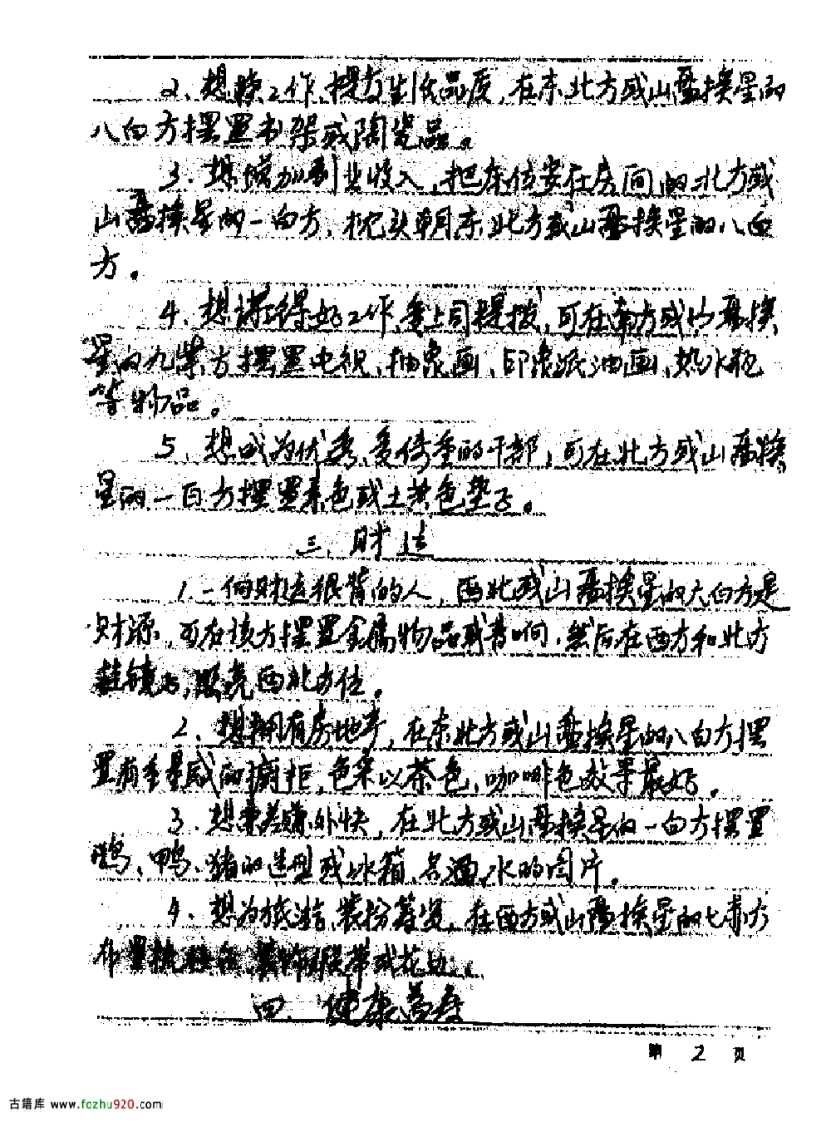 2、想换工作、提高生活品质，在东北方或山盘挨星的
八白方摆置书架或陶瓷品。
3、想增加副业收入，把床位安在房间的北方或
山盘挨星的一白方，枕头朝东北方或山盘挨星的八白
方。
4、想谋得好工作、受上司提拔，可在南方或山盘挨
星的九紫方摆置电视、抽象画、印象派油画、热水瓶
等物品。
5、想成为优秀、受倚重的干部，可在北方或山盘挨
星的一白方摆置 色或土黄色垫子。
三、财运
1、一俩财运很背的人，西北或山盘挨星的六白方是
财源，可在该方摆置金属物品或音响，然后在西方和北方
挂镜子，照亮西北方位。
2、想拥有房地产，在东北方或山盘挨星的八白方摆
置有重量感的橱柜，色彩以茶色，咖啡色效果最好。
3、想兼差赚外快，在北方或山盘挨星的一白方摆置
鸭、猪的造型或冰箱、名酒、水的图片。
4、想为旅游、装扮筹资，在西方或山盘挨星的七赤方
布置 缎带或花边。
四、健康
第 2 页
古籍库 www.fozhu920.com